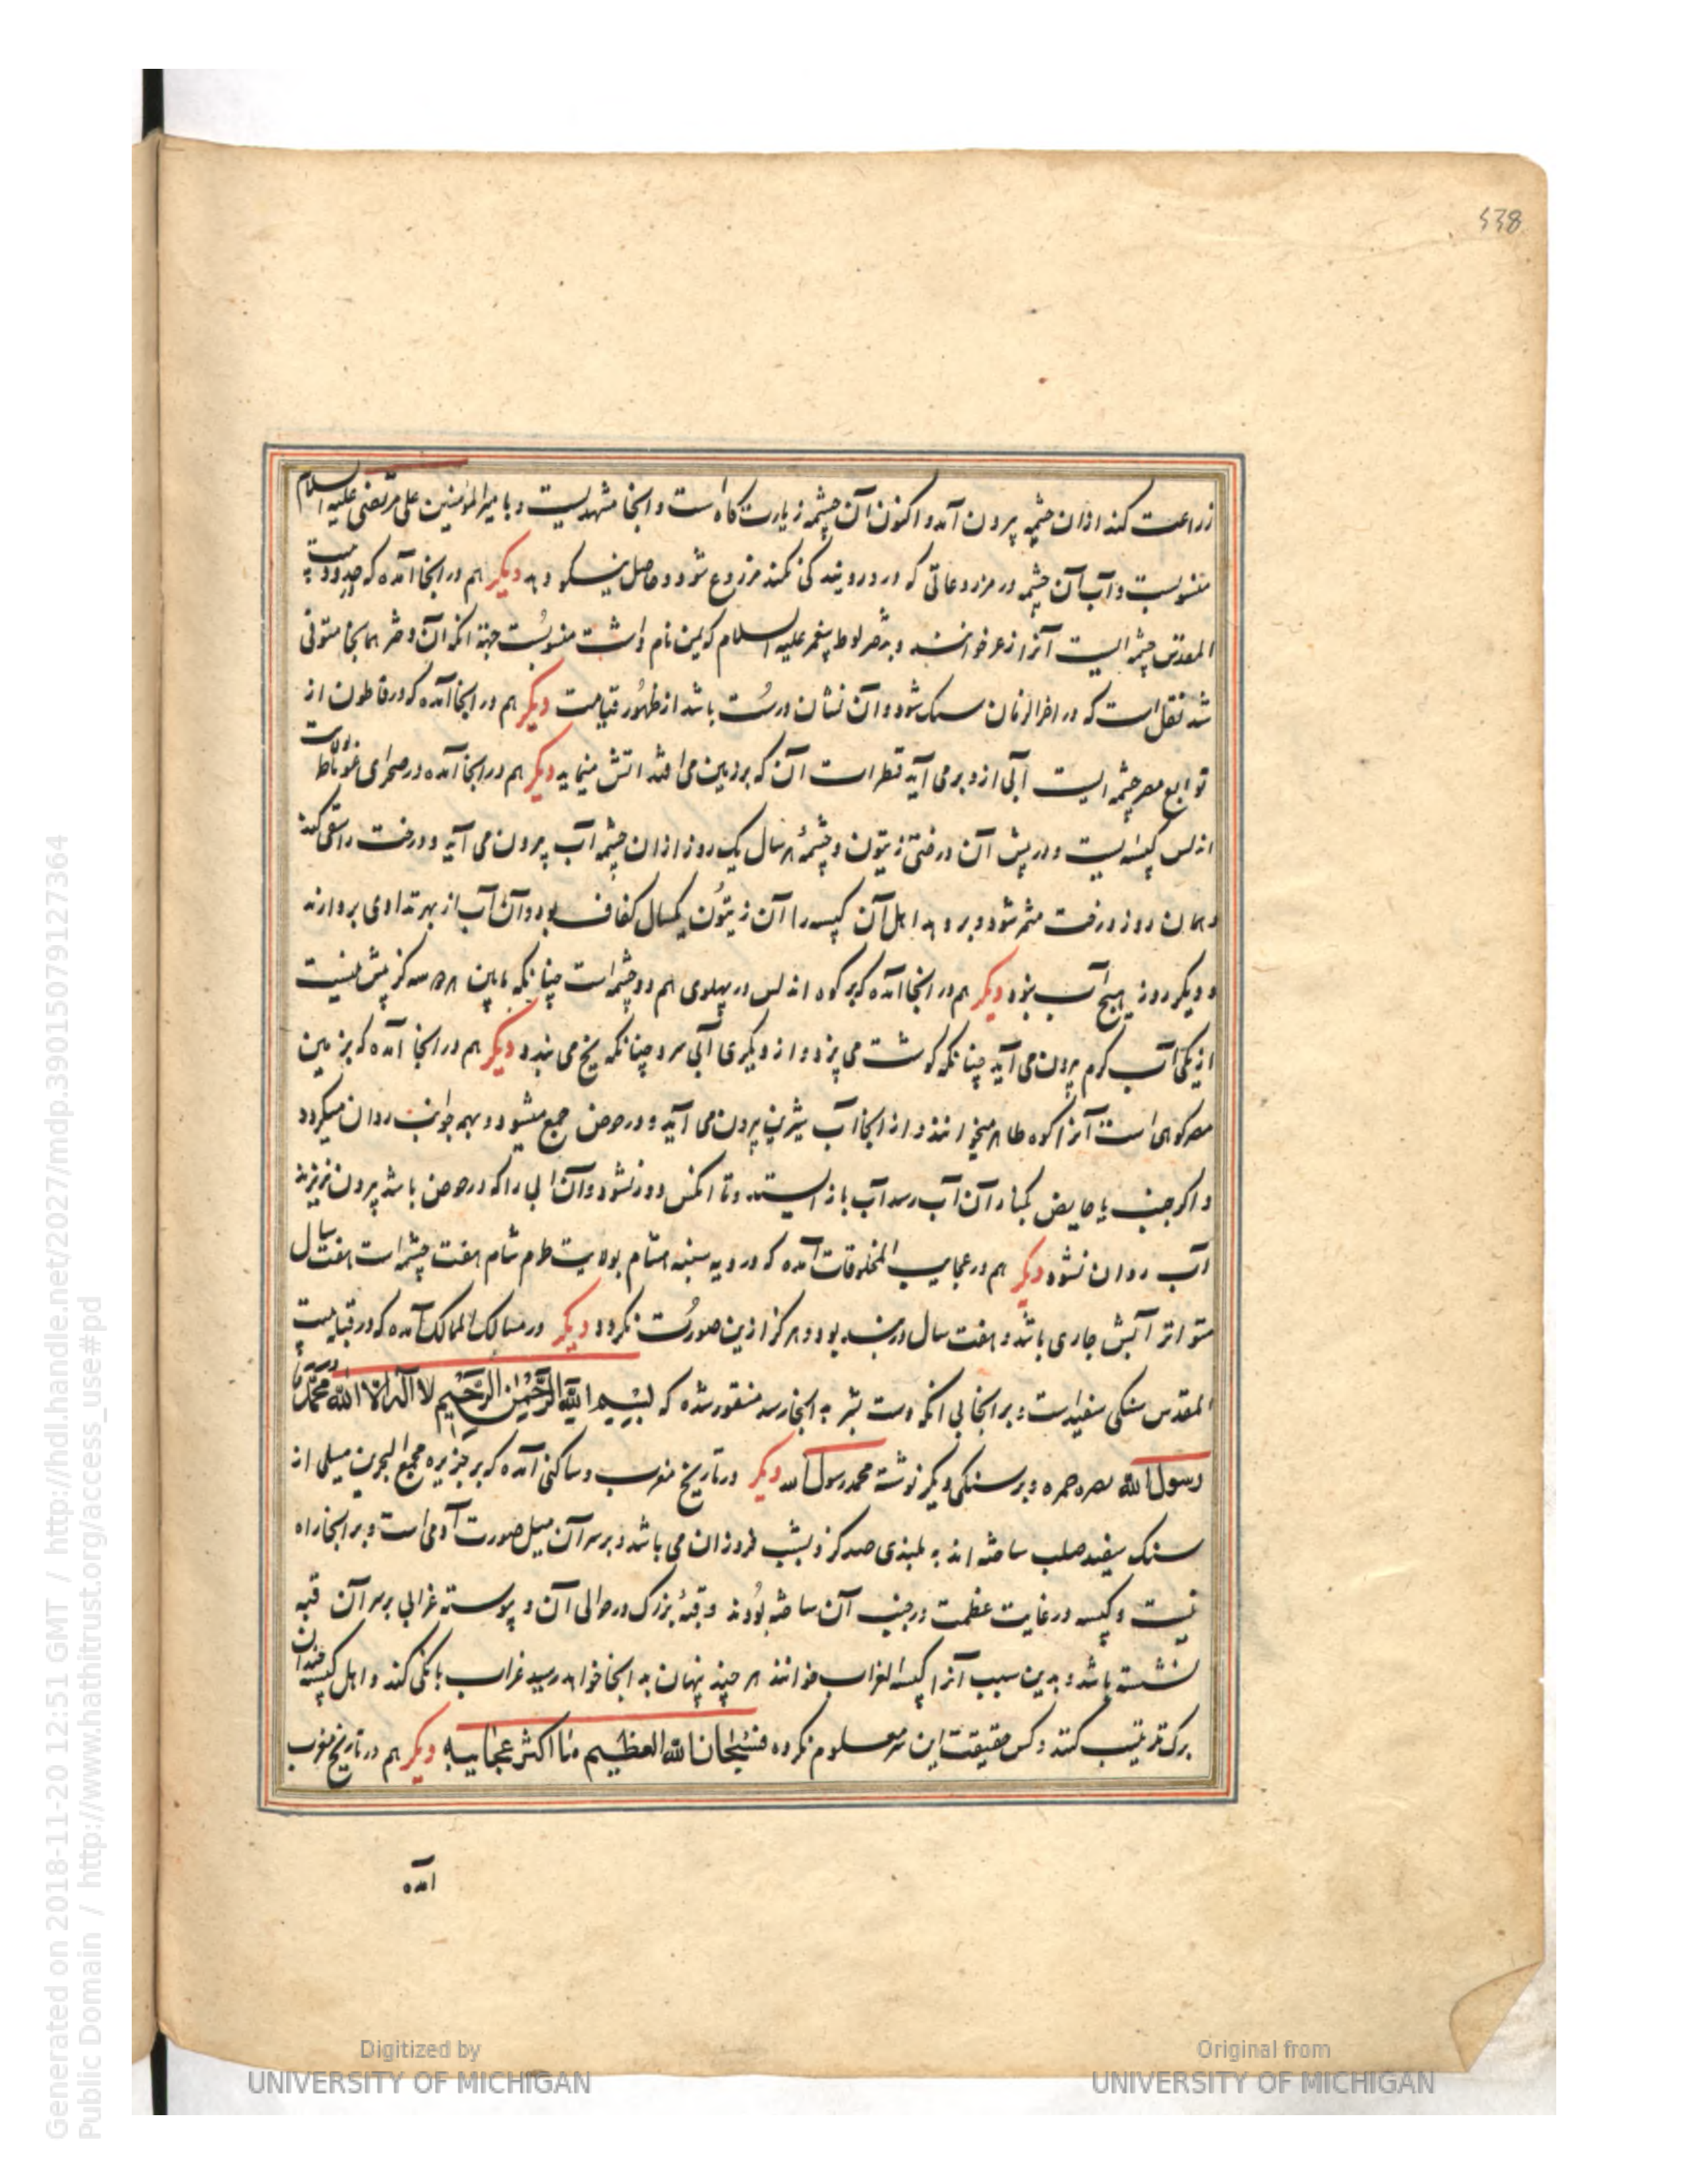 538
زراعت کند ازان چشمه بیرون آمد و اکنون آن چشمه زیارت کاه است و آنجا مشهدیست و بامیرالمؤمنین علی مرتضی علیه السلام
منسوبست و آب آن چشمه در مزروعاتی که درو روینده کی نکنند مزروع شود و حاصل نیکو دهد دیگر هم در انجا آمده که در حدود بیت
المقدس چشمه ایست آنرا زعر خوانند و بدختر لوط پیغمبر علیه السلام که همین نام داشت منسوبست جهة انکه آن دختر همانجا متوفی
شد نقل است که در اخر الزمان سبک شود و آن نشان درست باشد از ظهور قیامت دیگر هم در انجا آمده که در قاطون از
توابع مصر چشمه ایست آبی ازو برمی آید قطرات آن که بر زمین می افتد اتش مینماید دیگر هم در انجا آمده در صحرای غرناطه ولایت
اندلس کنیسه ایست و در پیش آن درختی زیتون و چشمهٔ هر سال یک روز ازان چشمه آب بیرون می آید و درخت را سقی کند
و همان روز درخت مثمر شود و برو دهد اهل آن کنیسه را آن زیتون یکسال کفاف بود و آن آب از بهر تداوی بردارند
و دیگر روز هیچ آب نبود دیگر هم در انجا آمده که بر کوه اندلس در پهلوی هم دو چشمه است چنانکه مابین هر دو سه گز بیش نیست
از یکی آب کرم بیرون می آید چنانکه کوشت می پزد و از دیگری آبی سرد چنانکه یخ می بندد دیگر هم در انجا آمده که بزمین
مصر کوهی است آنرا کوه طاهر میخوانند و از انجا آب شیرین بیرون می آید و در حوض جمع میشود و بهمه جوانب روان میکردد
و اکر جنب یا حایض بکنار آن آب رسد آب باز ایستد و تا انکس دور نشود و آن ابی را که در حوض باشد بیرون نریزند
آب روان نشود دیگر هم در عجایب المخلوقات آمده که در دیه سنه هشام بولایت طرم شام هفت چشمه است هفت سال
متواتر آبش جاری باشد و هفت سال در بند بود و هرکز ازین صورت نکردد دیگر در مسالک الممالک آمده که در قبه بیت
المقدس سنکی سفید است و بر انجا بی انکه دست بشر به انجا رسد منقور شده که بسم الله الرحمن الرحیم لا اله الا الله محمد
رسول الله نصره حمزه و بر سنکی دیگر نوشته محمد رسول الله دیگر در تاریخ مغرب و ساکنی آمده که بر جزیره مجمع البحرین میلی از
سنک سفید صلب ساخته اند به بلندی صد گز و بشب فروزان می باشد و بر سر آن میل صورت آدمی است و بر انجا راه
نیست و کنیسه در غایت عظمت در جنب آن ساخته بودند و قبهٔ بزرک در حوالی آن و پیوسته غرابی بر سر آن قبه
نشسته باشد و بدین سبب آنرا کنیسة الغراب خوانند هر چند پنهان به انجا خواهد رسید غراب بانکی کند و اهل کنیسه
برک ترتیب کنند و کس حقیقت این سر معلوم نکرده فسبحان الله العظیم ما اکثر عجایبه دیگر هم در تاریخ مغرب
آمده
Generated on 2018-11-20 12:51 GMT / http://hdl.handle.net/2027/mdp.39015079127364
Public Domain / http://www.hathitrust.org/access_use#pd
Digitized by
UNIVERSITY OF MICHIGAN
Original from
UNIVERSITY OF MICHIGAN